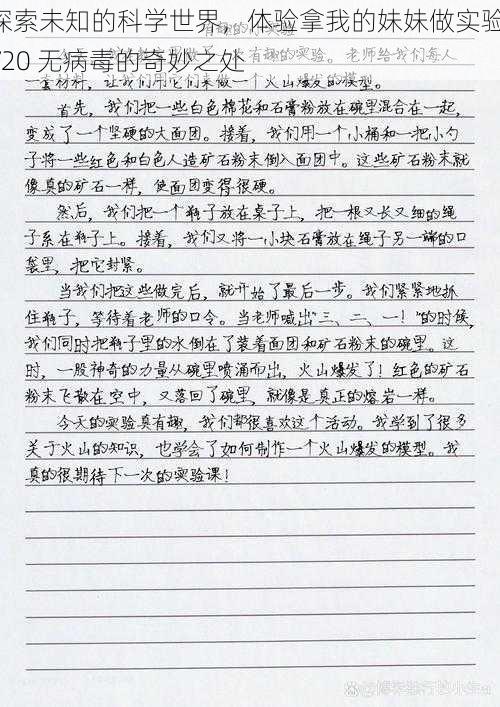 探索未知的科学世界，体验拿我的妹妹做实验
/20 无病毒的奇妙之处
有趣的小实验
有趣的实验。老师给我们每人
一套材料，让我们用它们来做一个火山爆发的模型。
首先，我们把一些白色棉花和石膏粉放在碗里混合在一起，
变成了一个坚硬的大面团。接着，我们用一个小桶和一把小勺
子将一些红色和白色人造矿石粉末倒入面团中。这些矿石粉末就
像真的矿石一样，使面团变得很硬。
然后，我们把一个瓶子放在桌子上，把一根又长又细的绳
子系在瓶子上。接着，我们又将一小块石膏放在绳子另一端的口
袋里，把它封紧。
当我们把这些做完后，就开始了最后一步。我们紧紧地抓
住瓶子，等待着老师的口令。当老师喊出“三、二、一！”的时候，
我们同时把瓶子里的水倒在了装着面团和矿石粉末的碗里。这
时，一股神奇的力量从碗里喷涌而出，火山爆发了！红色的矿石
粉末飞散在空中，又落回了碗里，就像是真正的熔岩一样。
今天的实验真有趣，我们都很喜欢这个活动。我学到了很多
关于火山的知识，也学会了如何制作一个火山爆发的模型。我
真的很期待下一次的实验课！